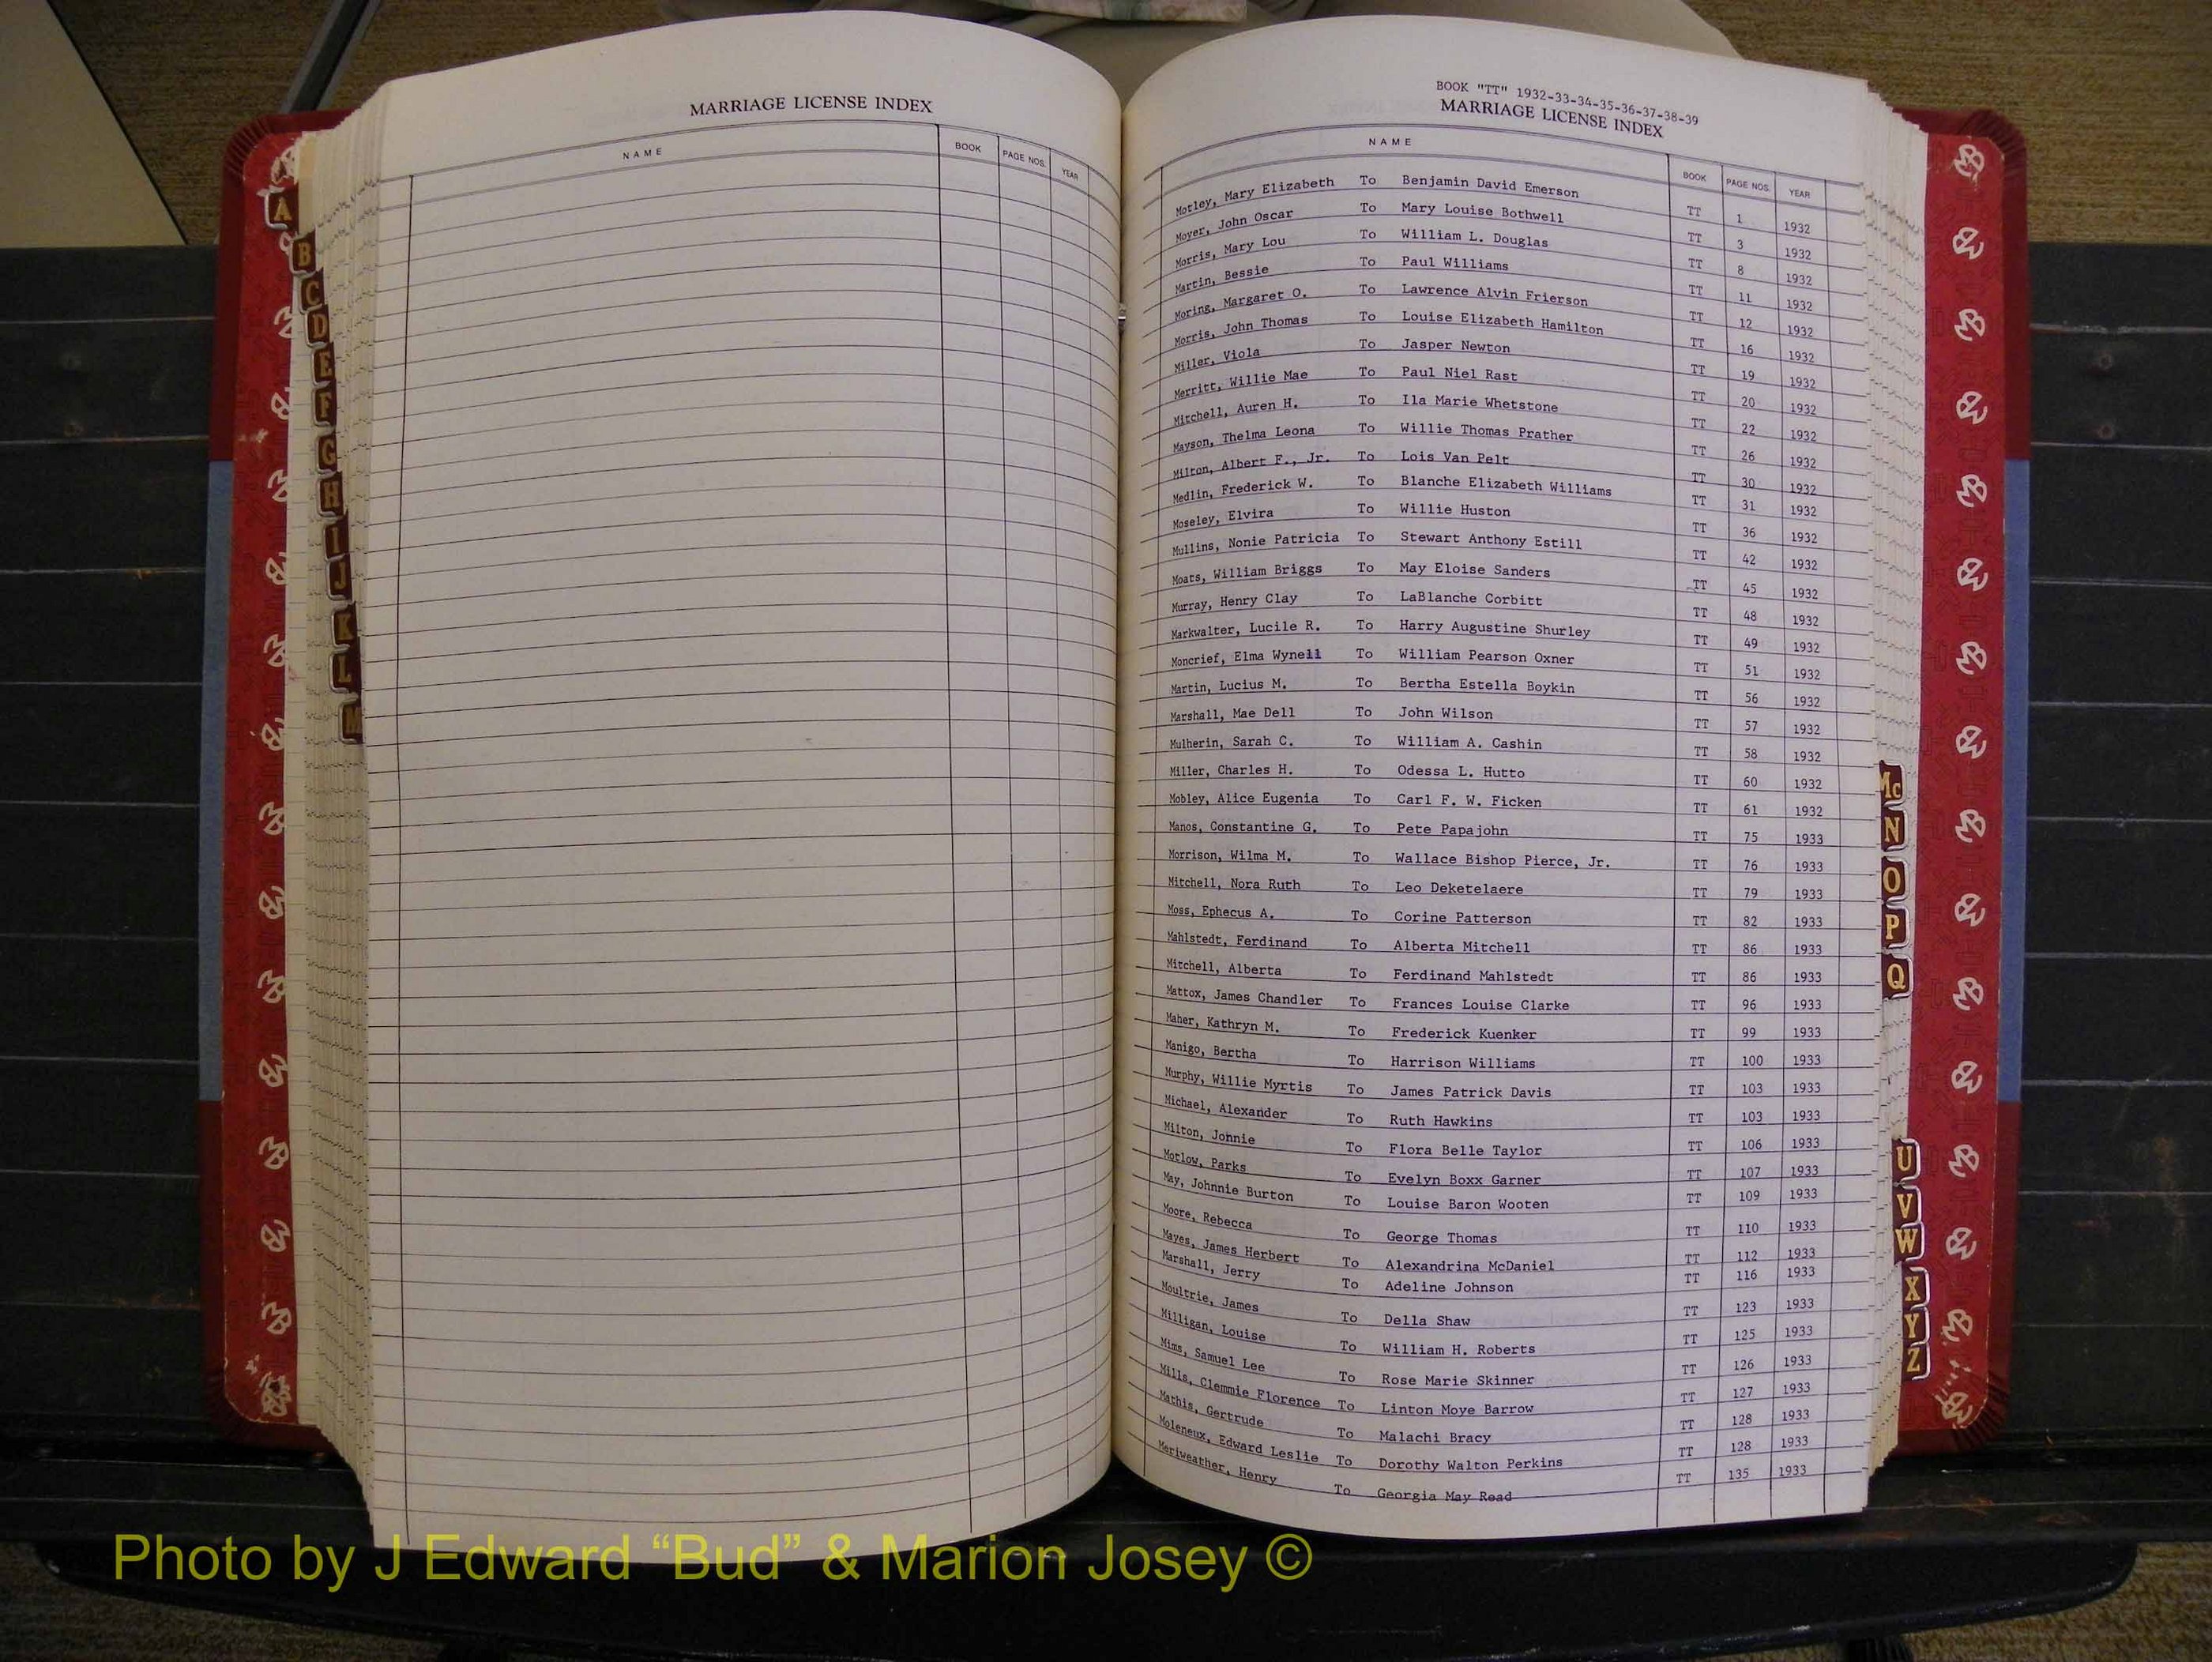 MARRIAGE LICENSE INDEX
NAME BOOK PAGE NOS. YEAR
A
B
C
D
E
F
G
H
I
J
K
L
M
BOOK "TT" 1932-33-34-35-36-37-38-39
MARRIAGE LICENSE INDEX
NAME BOOK PAGE NOS. YEAR
Motley, Mary Elizabeth To Benjamin David Emerson TT 1 1932
Moyer, John Oscar To Mary Louise Bothwell TT 3 1932
Morris, Mary Lou To William L. Douglas TT 8 1932
Martin, Bessie To Paul Williams TT 11 1932
Moring, Margaret O. To Lawrence Alvin Frierson TT 12 1932
Morris, John Thomas To Louise Elizabeth Hamilton TT 16 1932
Miller, Viola To Jasper Newton TT 19 1932
Merritt, Willie Mae To Paul Niel Rast TT 20 1932
Mitchell, Auren H. To Ila Marie Whetstone TT 22 1932
Mayson, Thelma Leona To Willie Thomas Prather TT 26 1932
Milton, Albert F., Jr. To Lois Van Pelt TT 30 1932
Medlin, Frederick W. To Blanche Elizabeth Williams TT 31 1932
Moseley, Elvira To Willie Huston TT 36 1932
Mullins, Nonie Patricia To Stewart Anthony Estill TT 42 1932
Moats, William Briggs To May Eloise Sanders TT 45 1932
Murray, Henry Clay To LaBlanche Corbitt TT 48 1932
Markwalter, Lucile R. To Harry Augustine Shurley TT 49 1932
Moncrief, Elma Wynell To William Pearson Oxner TT 51 1932
Martin, Lucius M. To Bertha Estella Boykin TT 56 1932
Marshall, Mae Dell To John Wilson TT 57 1932
Mulherin, Sarah C. To William A. Cashin TT 58 1932
Miller, Charles H. To Odessa L. Hutto TT 60 1932
Mobley, Alice Eugenia To Carl F. W. Ficken TT 61 1932
Manos, Constantine G. To Pete Papajohn TT 75 1933
Morrison, Wilma M. To Wallace Bishop Pierce, Jr. TT 76 1933
Mitchell, Nora Ruth To Leo Deketelaere TT 79 1933
Moss, Ephecus A. To Corine Patterson TT 82 1933
Mahlstedt, Ferdinand To Alberta Mitchell TT 86 1933
Mitchell, Alberta To Ferdinand Mahlstedt TT 86 1933
Mattox, James Chandler To Frances Louise Clarke TT 96 1933
Maher, Kathryn M. To Frederick Kuenker TT 99 1933
Manigo, Bertha To Harrison Williams TT 100 1933
Murphy, Willie Myrtis To James Patrick Davis TT 103 1933
Michael, Alexander To Ruth Hawkins TT 103 1933
Milton, Johnie To Flora Belle Taylor TT 106 1933
Motlow, Parks To Evelyn Boxx Garner TT 107 1933
May, Johnnie Burton To Louise Baron Wooten TT 109 1933
Moore, Rebecca To George Thomas TT 110 1933
Mayes, James Herbert To Alexandrina McDaniel TT 112 1933
Marshall, Jerry To Adeline Johnson TT 116 1933
Moultrie, James To Della Shaw TT 123 1933
Milligan, Louise To William H. Roberts TT 125 1933
Mims, Samuel Lee To Rose Marie Skinner TT 126 1933
Mills, Clemmie Florence To Linton Moye Barrow TT 127 1933
Mathis, Gertrude To Malachi Bracy TT 128 1933
Moleneux, Edward Leslie To Dorothy Walton Perkins TT 128 1933
Meriweather, Henry To Georgia May Read TT 135 1933
Mc
N
O
P
Q
U
V
W
X
Y
Z
Photo by J Edward “Bud” & Marion Josey ©